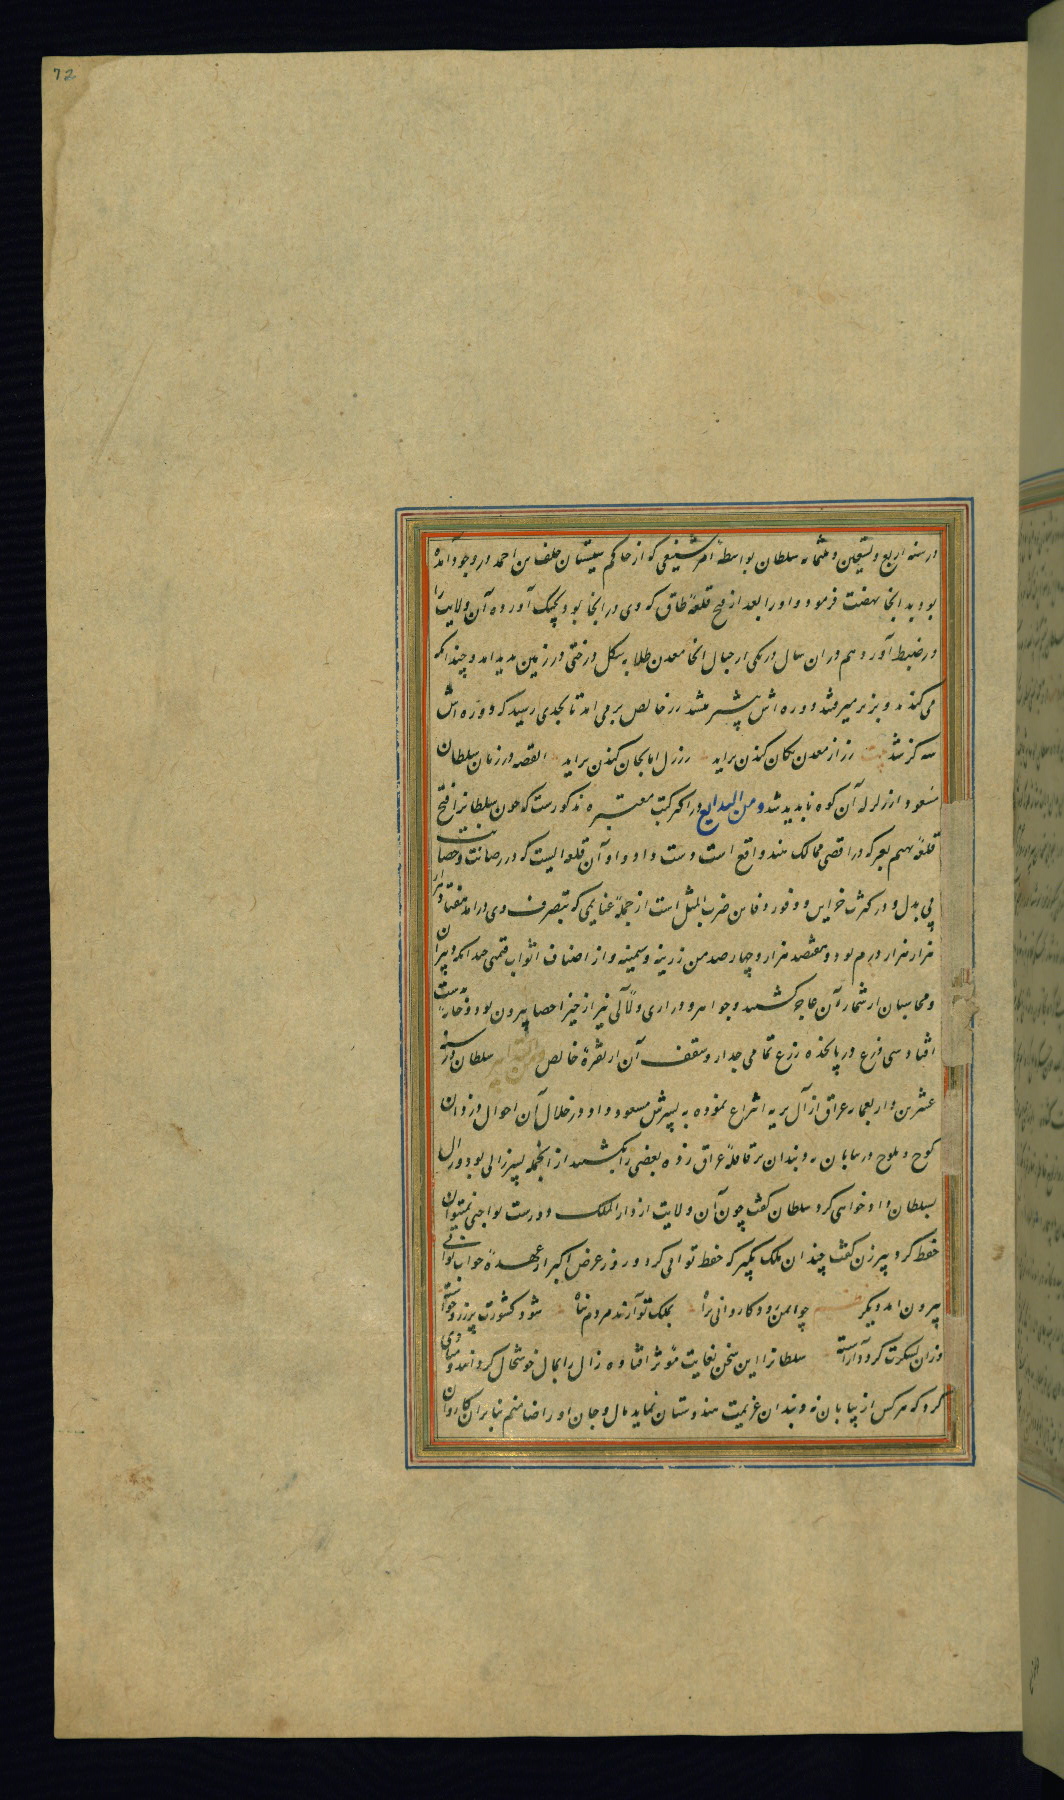 72
در سنه اربع و تسعین و ثلثمایه سلطان بواسطهٔ امر شنیعی که از حاکم سیستان خلف بن احمد در وجود آمده
بود بدانجا نهضت فرمود و او را بعد از فتح قلعهٔ طاق که وی در انجا بود بچنگ آورده آن ولایت را
در ضبط آورد و هم در ان سال در یکی از جبال انجا معدن طلا به شکل درختی در زمین پدید امد و چندانکه
می کندند و بزیر میرفتند دوره اش بیشتر میشد و زر خالص بر می امد تا بحدی رسید که دوره اش
سه کز شد بیت زر از معدن بکان کندن براید زرزل اما بجان کندن براید القصه در زمان سلطان
مسعود از زلزله آن کوه ناپدید شد و من البدایع در اکثر کتب معتبره مذکورست که چون سلطانرا فتح
قلعهٔ بهیم بغر که در اقصی ممالک هند واقع است دست داد و آن قلعه ایست که در رصانت و حصانت
بی بدل و در کثرت خزاین و وفور دفاین ضرب المثل است از جملهٔ غنایمی که بتصرف وی در امد هفتاد هزار
هزار هزار درم بود و هفتصد هزار و چهارصد من زرینه و سیمینه و از اصناف اثواب قیمتی چندانکه دبیران
و محاسبان از شمار آن عاجز کشتند و جواهر و دراری و لآلی نیز از حیز احصا بیرون بود و خانه بیست
افتاد سی ذرع در پانزده ذرع تمامی جدار و سقف آن از نقرهٔ خالص سلطان در سنه
عشرین و اربعمایه عراق از آل بویه انتزاع نموده به پسرش مسعود داد و در خلال آن احوال دزدان
کوچ و بلوچ در بیابان نه و بندان بر قافلهٔ عراق زده بعضی را بکشتند از انجمله پسر زالی بود و زال
بسلطان دادخواهی کرد سلطان کفت چون آن ولایت از دار الملک دورست بواجبی نمیتوان
حفظ کرد پیرزن کفت چندان ملک بکیر که حفظ توانی کرد و روز عرض اکبر از عهدهٔ جواب توانی
بیرون امد و یکر چو ایمن رود کاروانی براه بملک تو آرند مردم پناه شود کشورت پر زر و خواسته
وزان لشکرت کردد آراسته سلطانرا این سخن بغایت مؤثر افتاده زال را بمال خوشحال کردانید و منادی
کرد که هر کس از بیابان نه و بندان عزیمت هندوستان نماید مال و جان او را ضامنم بنابران کاروان